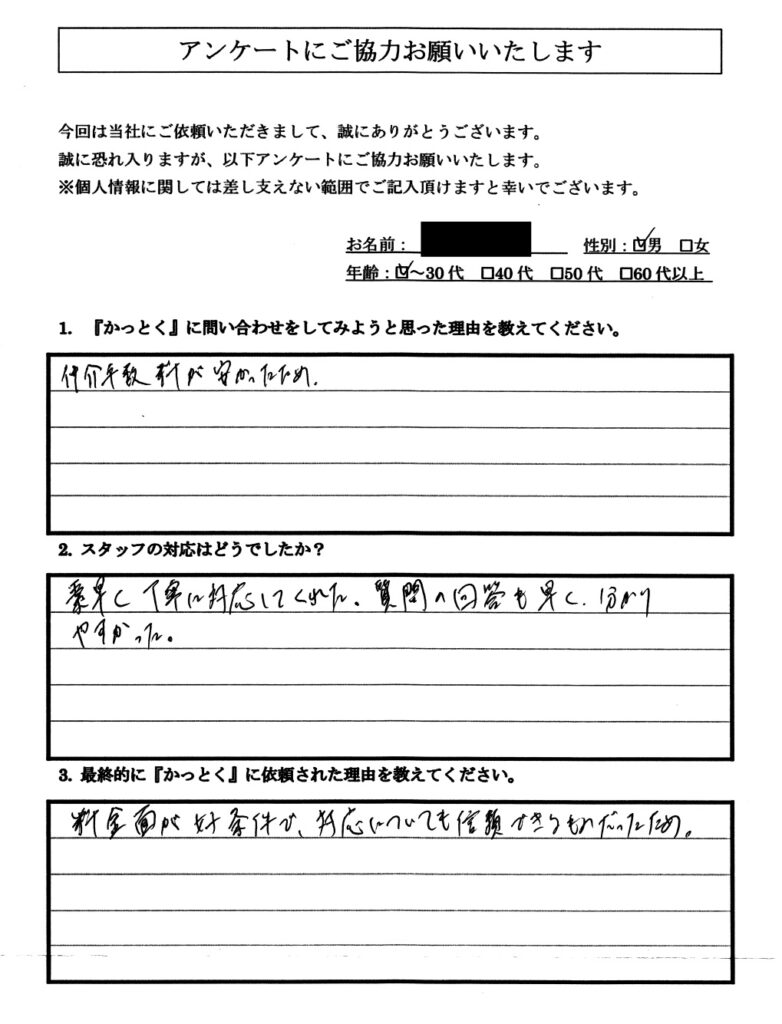 アンケートにご協力お願いいたします
今回は当社にご依頼いただきまして、誠にありがとうございます。
誠に恐れ入りますが、以下アンケートにご協力お願いいたします。
※個人情報に関しては差し支えない範囲でご記入頂けますと幸いでございます。
お名前： 性別：☑男 □女
年齢：☑～30代 □40代 □50代 □60代以上
1. 『かっとく』に問い合わせをしてみようと思った理由を教えてください。
仲介手数料が安かったため.
2. スタッフの対応はどうでしたか？
素早く丁寧に対応してくれた。質問の回答も早く、分かり
やすかった。
3. 最終的に『かっとく』に依頼された理由を教えてください。
料金面が好条件で、対応についても信頼できるものだったため。